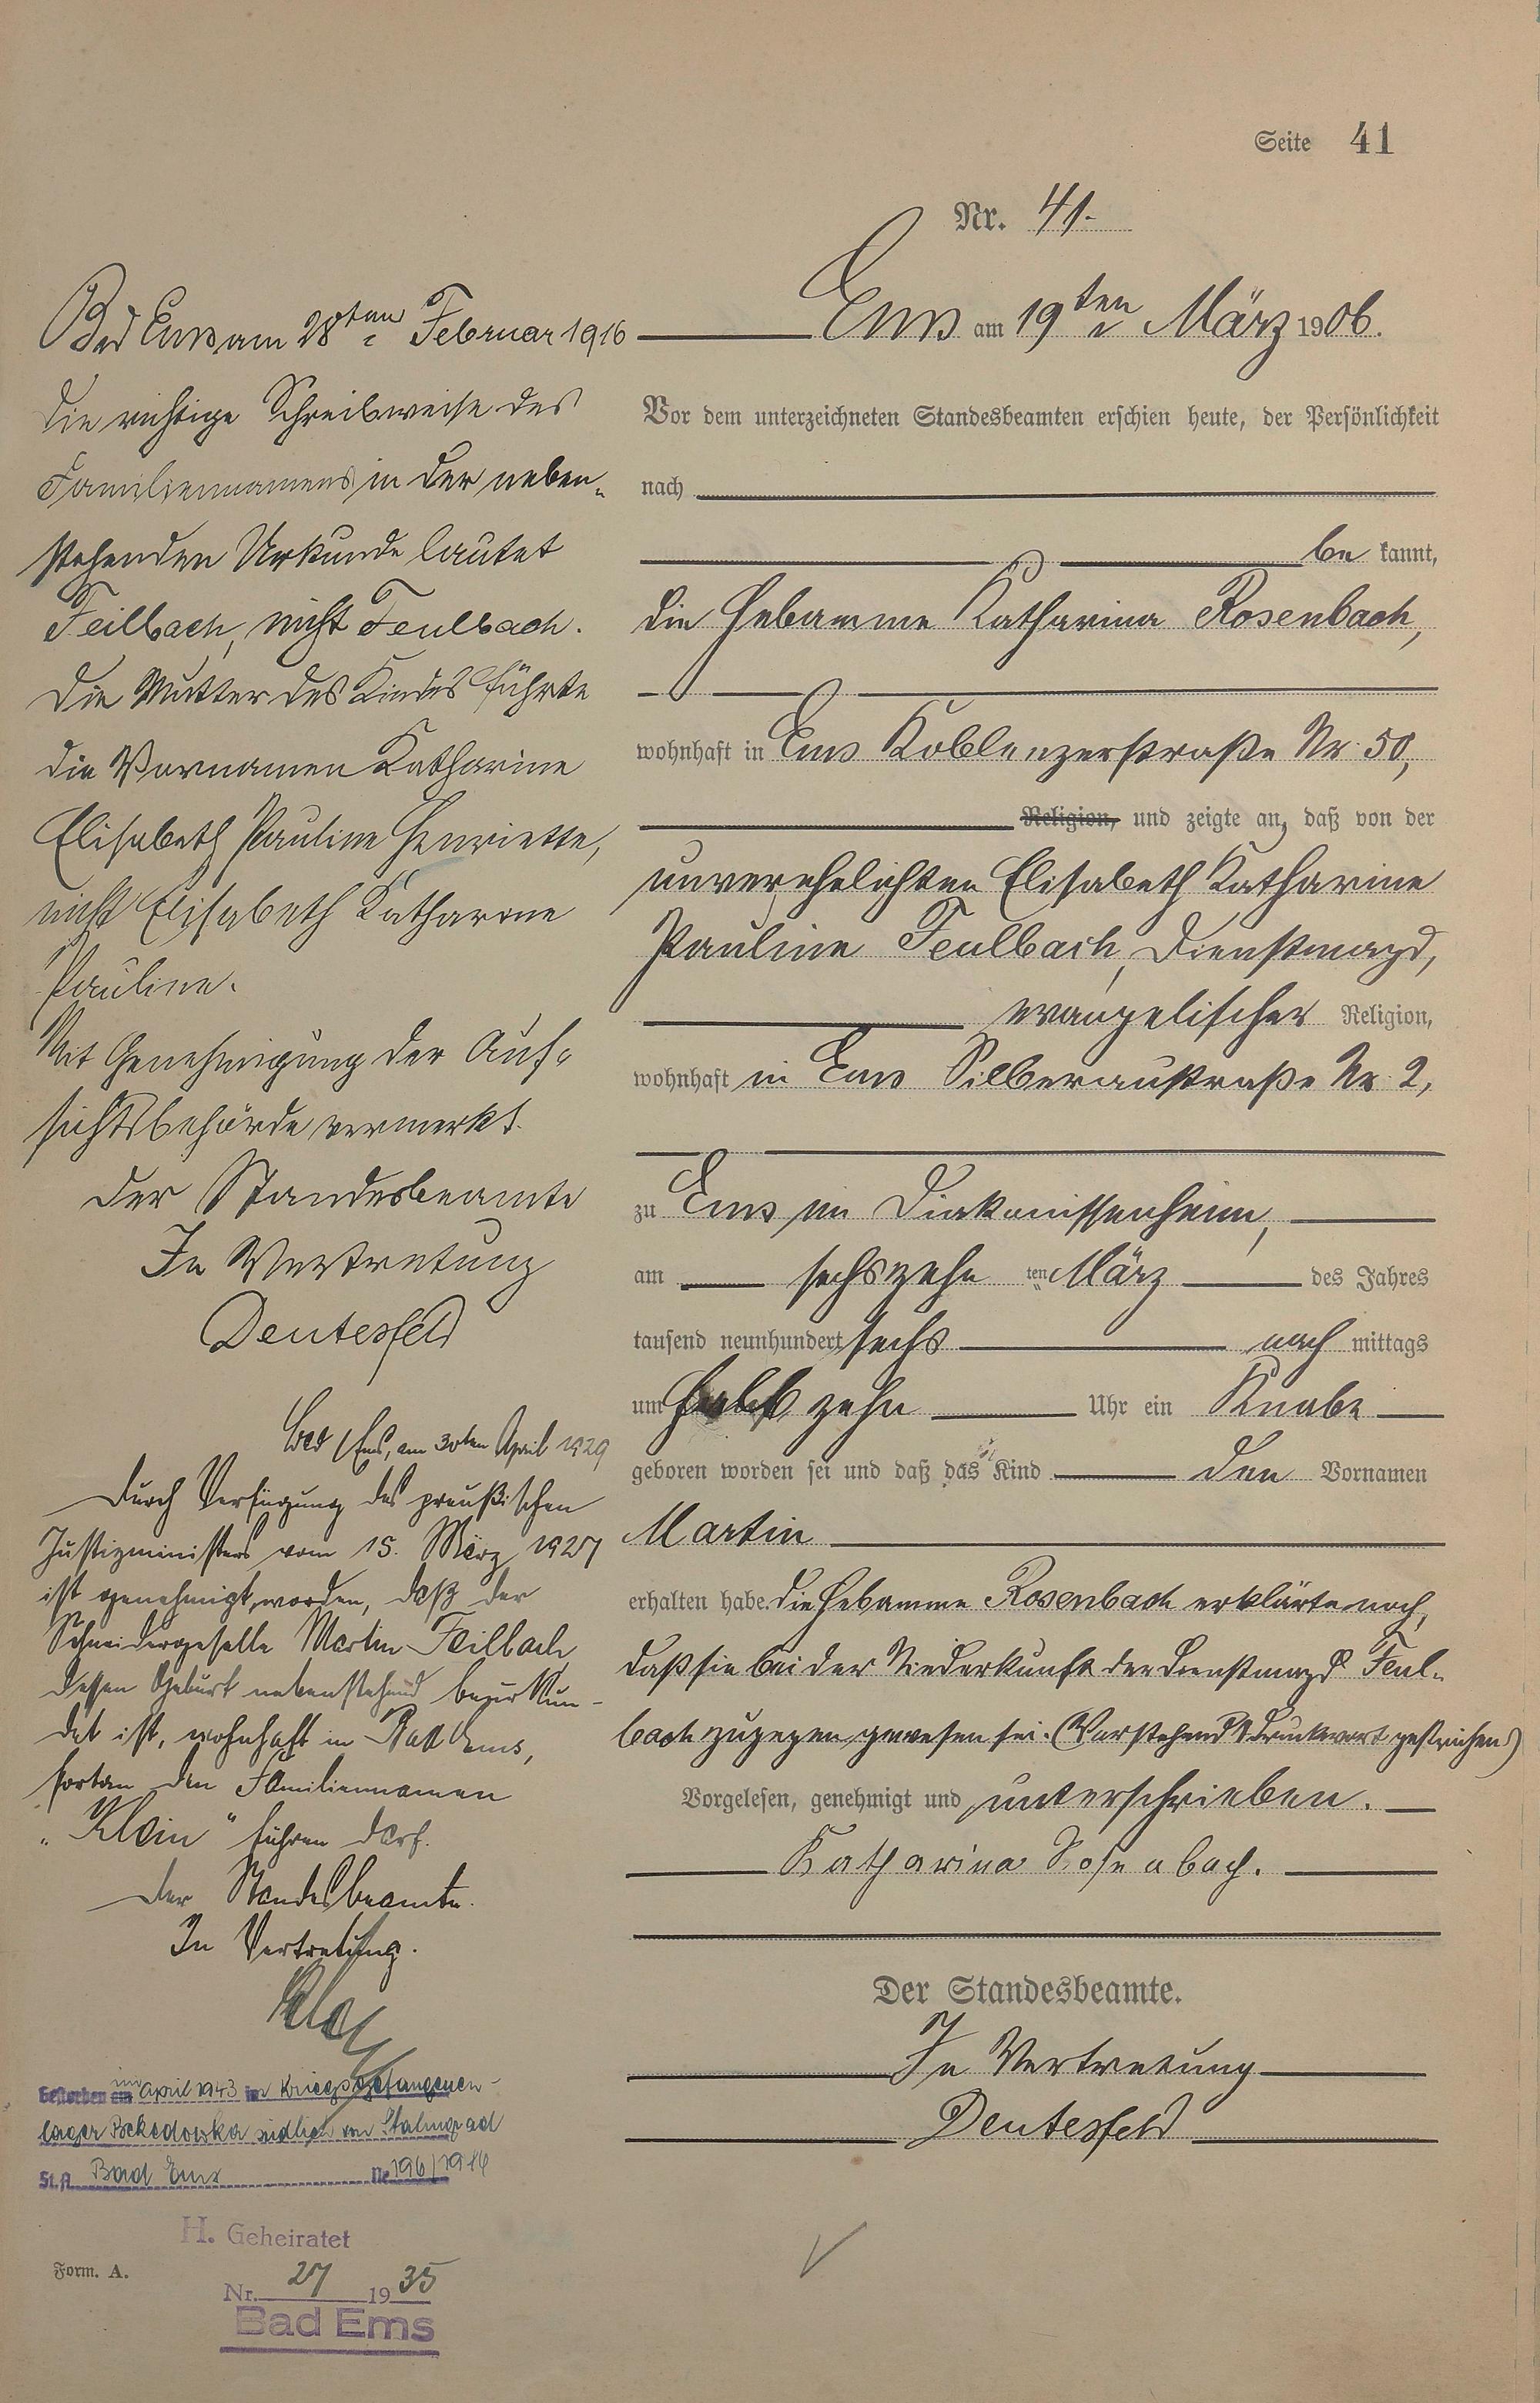 Seite 41
Nr. 41.
Ems am 19ten März 1906.
Vor dem unterzeichneten Standesbeamten erschien heute, der Persönlichkeit
nach
be kannt,
die Hebamme Katharina Rosenbach,
wohnhaft in Ems Koblenzerstraße Nr. 50,
Religion, und zeigte an, daß von der
unverehelichten Elisabeth Katharine
Pauline Feulbach, Dienstmagd,
evangelischer Religion,
wohnhaft in Ems Silberaustraße Nr. 2,
zu Ems im Diakonissenheim,
am sechszehn ten März des Jahres
tausend neunhundert sechs nach mittags
um halb zehn Uhr ein Knabe
geboren worden sei und daß das Kind den Vornamen
Martin
erhalten habe. Die Hebamme Rosenbach erklärte noch,
daß sie bei der Niederkunft der Dienstmagd Feul-
bach zugegen gewesen sei. (Vorstehend 1 Druckwort gestrichen)
Vorgelesen, genehmigt und unterschrieben.
Katharina Rosenbach.
Der Standesbeamte.
In Vertretung
Deutesfeld
Bad Ems am 28ten Februar 1916
Die richtige Schreibweise des
Familiennamens in der neben-
stehenden Urkunde lautet
Feilbach, nicht Feulbach.
Die Mutter des Kindes führte
die Vornamen Katharine
Elisabeth Pauline Henriette,
nicht Elisabeth Katharine
Pauline.
Mit Genehmigung der Auf-
sichtsbehörde vermerkt.
Der Standesbeamte
In Vertretung
Deutesfeld
Bad Ems, am 30ten April 1929
Durch Verfügung des preußischen
Justizministers vom 15. März 1927
ist genehmigt worden, daß der
Schneidergeselle Martin Feilbach,
dessen Geburt nebenstehend beurkun-
det ist, wohnhaft in Bad Ems,
fortan den Familiennamen
"Klein" führen darf.
Der Standesbeamte.
In Vertretung.
Gestorben am im April 1943 im Kriegsgefangenen-
lager Beketowka südlich von Stalingrad
St.A. Bad Ems Nr. 196/1946
H. Geheiratet
Form. A.
Nr. 27 1935
Bad Ems